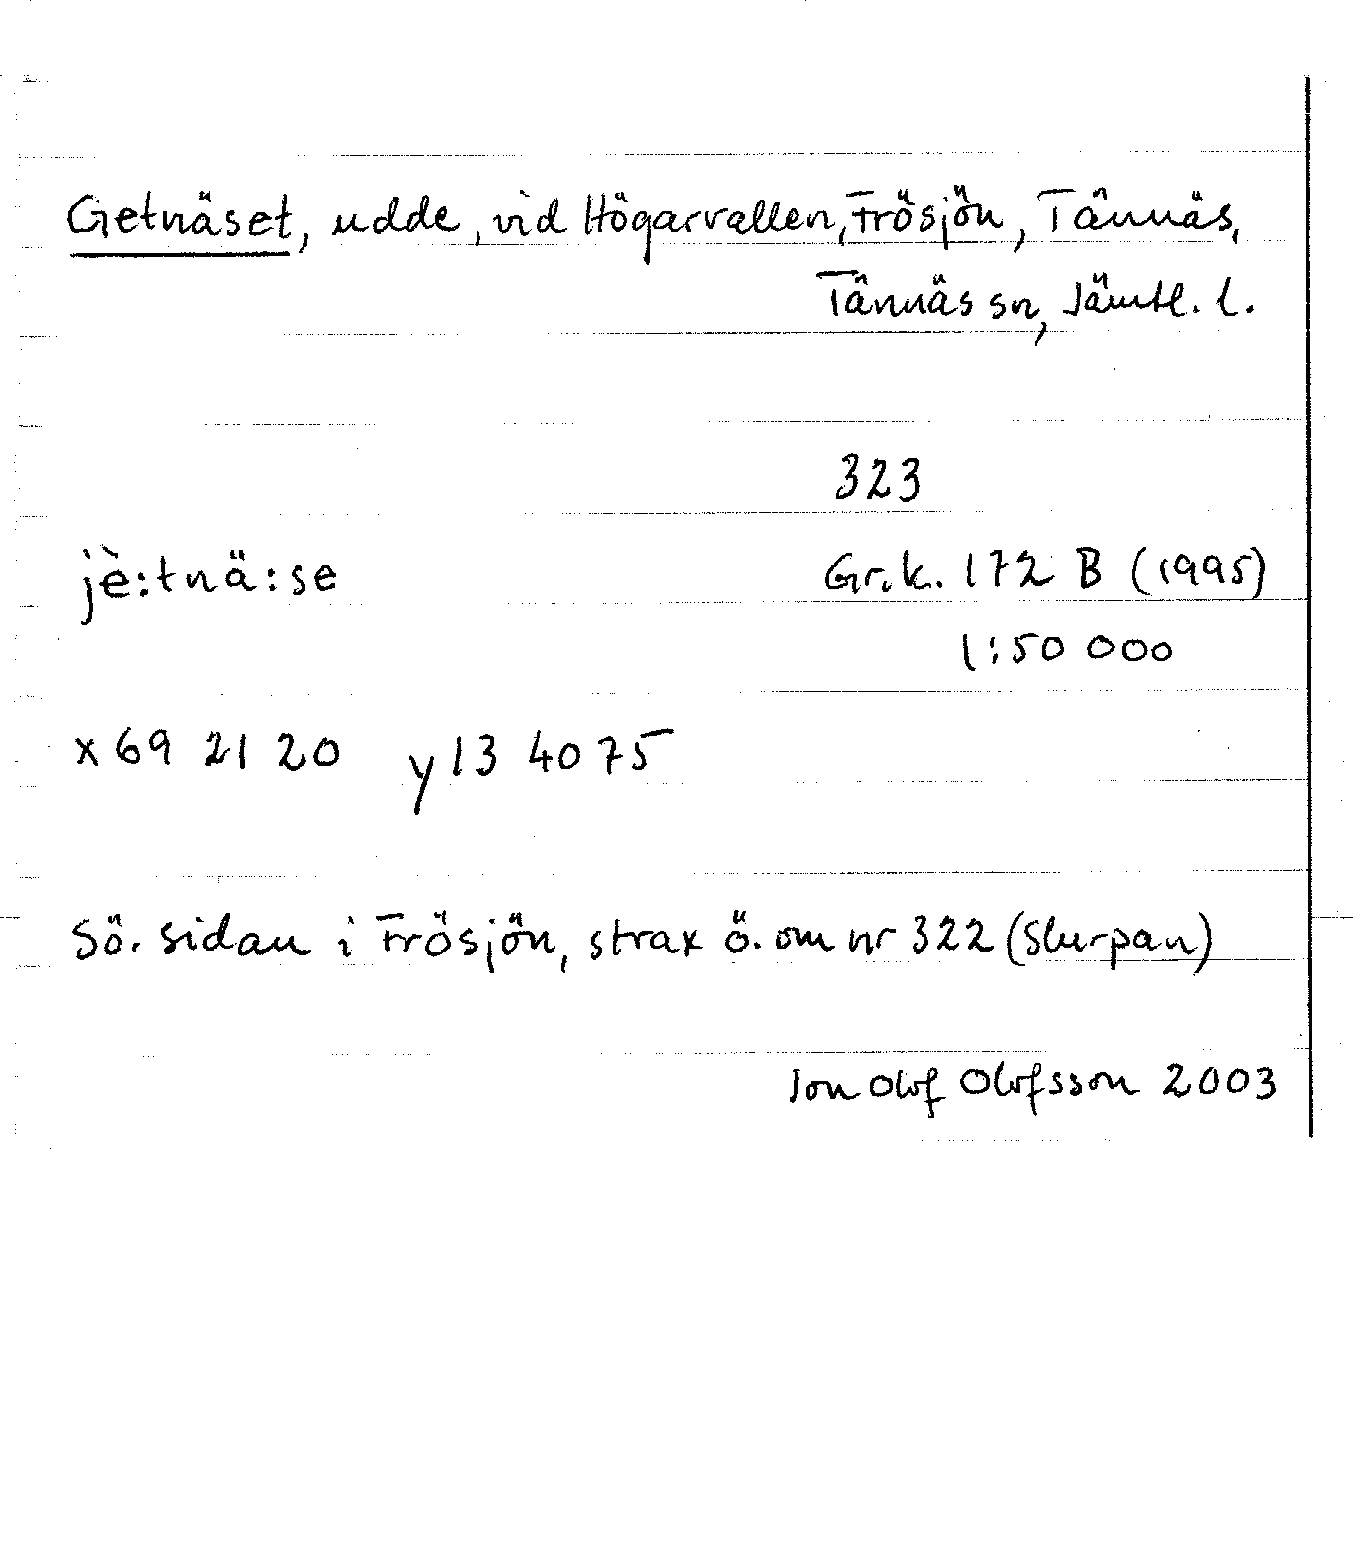 Getnäset, udde, vid Högarvallen, Frösjön, Tännäs,
Tännäs sn, Jämtl. l.
323
jè:tnä:se Gr.k. 172 B (1995)
1:50 000
x 69 21 20 y 13 40 75
Sö. sidan i Frösjön, strax ö. om nr 322 (Slurpan)
Jon Olof Olofsson 2003